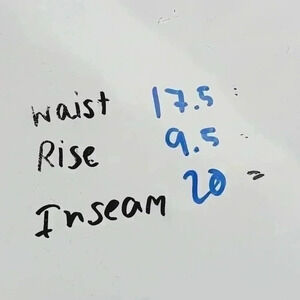 waist 17.5 "
Rise 9.5 "
Inseam 20 "